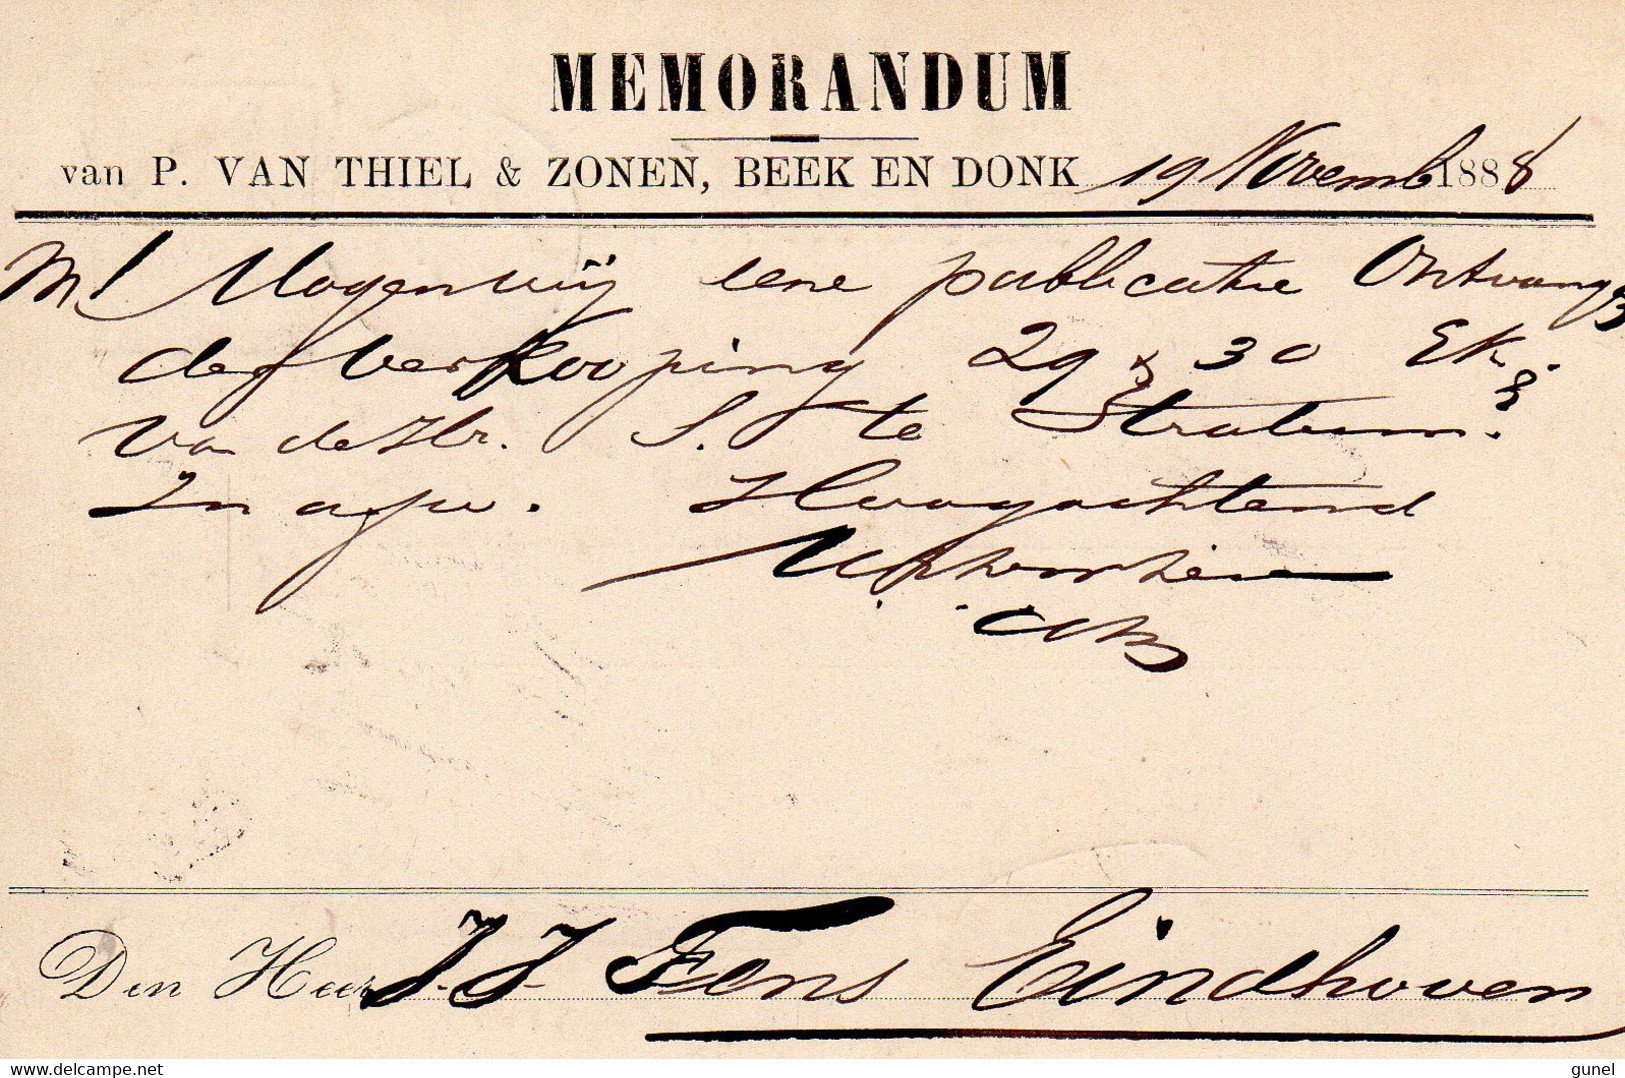 MEMORANDUM
van P. VAN THIEL & ZONEN, BEEK EN DONK 19 Novemb 1888
M! Mogen wij eene publicatie Ontvang
der verkooping 29 & 30 Ek.
van de Hr. S. te Stratum.
In afw. Hoogachtend
Den Heer J. J. Fens Eindhoven
delcampe.net
gunel